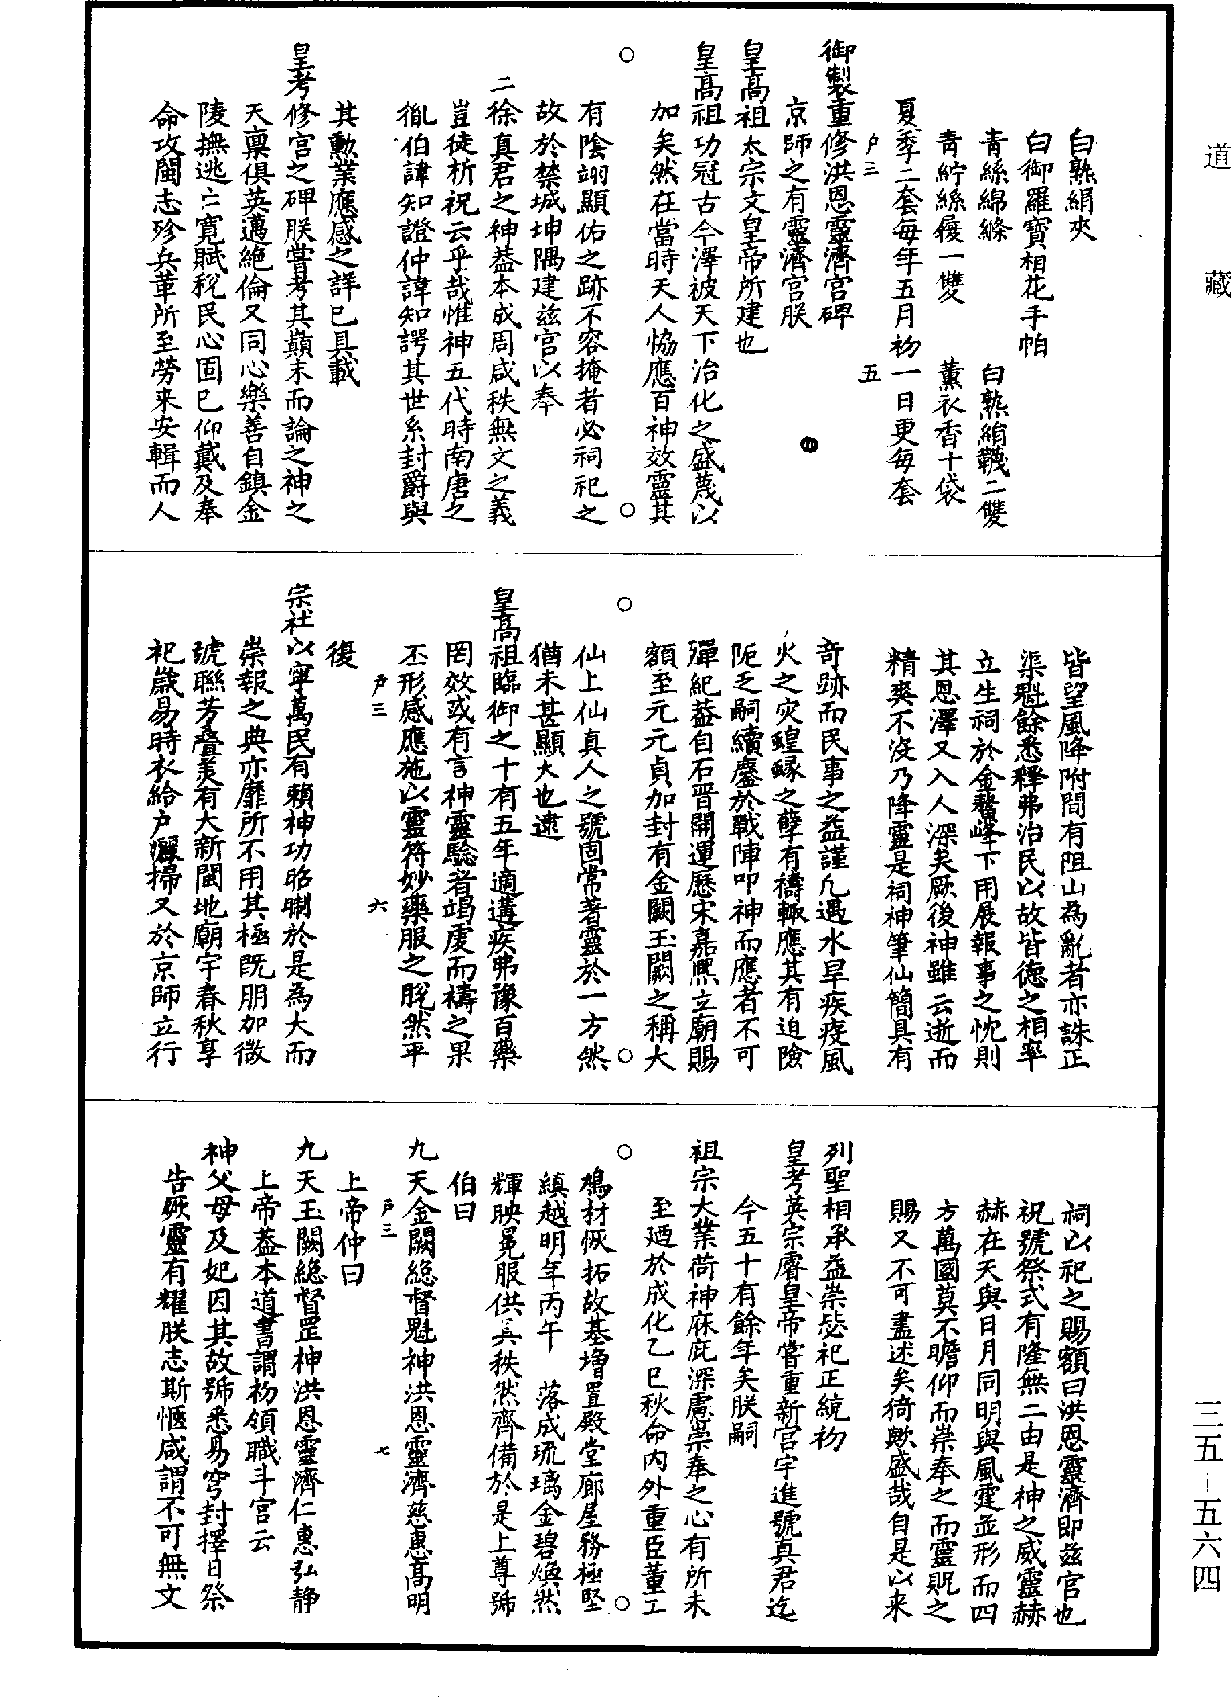 道藏
白熟絹夾
白御羅寶相花手帕
青絲綿縧　白熟絹韈二雙
青紵絲履一雙　薰衣香十袋
夏季二套每年五月初一日更每套
户三　五
御製重修洪恩靈濟宮碑
京師之有靈濟宮朕
皇高祖太宗文皇帝所建也
皇高祖功冠古今澤被天下治化之盛蔑以
加矣然在當時天人恊應百神效靈其
有陰翊顯佑之跡不容掩者必祠祀之
故於禁城坤隅建兹宮以奉
二徐真君之神葢本成周咸秩無文之義
豈徒祈祝云乎哉惟神五代時南唐之
㣧伯諱知證仲諱知諤其世系封爵與
其勳業應感之詳已具載
皇考修宮之碑朕嘗考其顛末而論之神之
天禀俱英邁絶倫又同心樂善自鎮金
陵撫逃亡寬賦稅民心固已仰戴及奉
命攻閩志殄兵革所至勞来安輯而人
皆望風降附間有阻山為亂者亦誅正
渠魁餘悉釋弗治民以故皆德之相率
立生祠於金鰲峰下用展報事之忱則
其恩澤又入人深矣厥後神雖云逝而
精爽不沒乃降靈是祠神筆仙簡具有
奇跡而民事之益謹凡遇水旱疾疫風
火之灾蝗蝝之孽有禱輙應其有迫險
阨乏嗣續鏖於戰陣叩神而應者不可
殫紀葢自石晋開運歷宋嘉熙立廟賜
額至元元貞加封有金闕玉闕之稱大
仙上仙真人之號固常著靈於一方然
猶未甚顯大也逮
皇高祖臨御之十有五年適遘疾弗豫百藥
罔效或有言神靈驗者竭虔而禱之果
丕形感應施以靈符妙藥服之脫然平
户三　六
復
宗社以寧萬民有賴神功昭晰於是為大而
崇報之典亦靡所不用其極既朋加徵
號聯芳疊羙有大新閩地廟宇春秋享
祀歲易時衣給户灑掃又於京師立行
祠以祀之賜額曰洪恩靈濟即兹宫也
祝號祭式有隆無二由是神之威靈赫
赫在天與日月同明與風霆並形而四
方萬國莫不瞻仰而崇奉之而靈貺之
賜又不可盡述矣猗歟盛哉自是以来
列聖相承益崇毖祀正統初
皇考英宗睿皇帝嘗重新宮宇進號真君迄
今五十有餘年矣朕嗣
祖宗大業荷神庥庇深慮崇奉之心有所未
至廼於成化乙巳秋命内外重臣董工
鳩材恢拓故基增置殿堂廊屋務極堅
縝越明年丙午　落成琉璃金碧煥然
輝映冕服供具秩然齊備於是上尊號
伯曰
九天金闕總督魁神洪恩靈濟慈惠高明
户三　七
上帝仲曰
九天玉闕總督罡神洪恩靈濟仁惠弘静
上帝葢本道書謂初領職斗宮云
神父母及妃因其故號悉易穹封擇日祭
告厥靈有耀朕志斯愜咸謂不可無文
三五—五六四